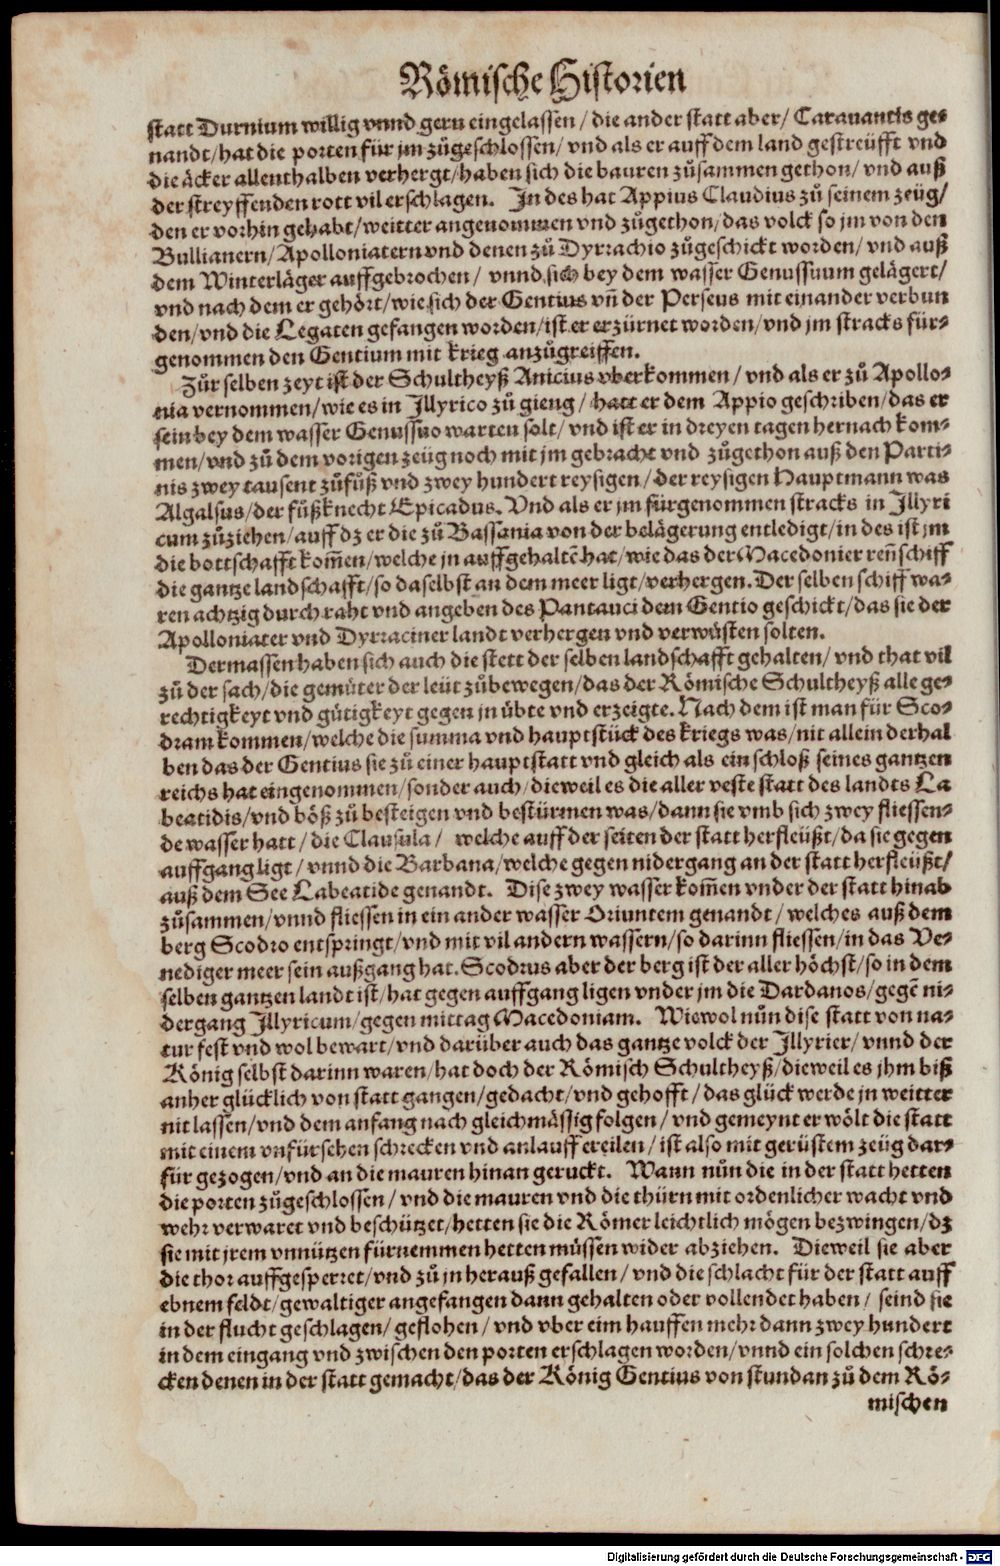 Römische Historien
statt Durnium willig vnnd gern eingelassen / die ander statt aber / Carauantis ge-
nandt / hat die porten für jm zůgeschlossen / vnd als er auff dem land gestreüfft vnd
die äcker allenthalben verhergt / haben sich die bauren zůsammen gethon / vnd auß
der streyffenden rott vil erschlagen. In des hat Appius Claudius zů seinem zeüg /
den er vorhin gehabt / weitter angenommen vnd zůgethon / das volck so jm von den
Bullianern / Apolloniatern vnd denen zů Dyrrachio zůgeschickt worden / vnd auß
dem Winterläger auffgebrochen / vnnd sich bey dem wasser Genussuum gelägert /
vnd nach dem er gehört / wie sich der Gentius vñ der Perseus mit einander verbun
den / vnd die Legaten gefangen worden / ist er erzürnet worden / vnd jm stracks für-
genommen den Gentium mit krieg anzůgreiffen.
Zůr selben zeyt ist der Schultheyß Anicius vberkommen / vnd als er zů Apollo-
nia vernommen / wie es in Illyrico zů gieng / hatt er dem Appio geschriben / das er
sein bey dem wasser Genussuo warten solt / vnd ist er in dreyen tagen hernach kom-
men / vnd zů dem vorigen zeüg noch mit jm gebracht vnd zůgethon auß den Parti-
nis zwey tausent zůfůß vnd zwey hundert reysigen / der reysigen Hauptmann was
Algalsus / der fůßknecht Epicadus. Vnd als er jm fürgenommen stracks in Illyri
cum zůziehen / auff dz er die zů Bassania von der belägerung entledigt / in des ist jm
die bottschafft kom̃en / welche jn auffgehaltẽ hat / wie das der Macedonier reñschiff
die gantze landschafft / so daselbst an dem meer ligt / verhergen. Der selben schiff wa-
ren achtzig durch raht vnd angeben des Pantauci dem Gentio geschickt / das sie der
Apolloniater vnd Dyrraciner landt verhergen vnd verwůsten solten.
Dermassen haben sich auch die stett der selben landschafft gehalten / vnd that vil
zů der sach / die gemüter der leüt zůbewegen / das der Römische Schultheyß alle ge-
rechtigkeyt vnd gütigkeyt gegen jn übte vnd erzeigte. Nach dem ist man für Sco-
dram kommen / welche die summa vnd hauptstück des kriegs was / nit allein derhal
ben das der Gentius sie zů einer hauptstatt vnd gleich als ein schloß seines gantzen
reichs hat eingenommen / sonder auch / dieweil es die aller veste statt des landts La
beatidis / vnd böß zů besteigen vnd bestürmen was / dann sie vmb sich zwey fliessen-
de wasser hatt / die Clausula / welche auff der seiten der statt herfleüßt / da sie gegen
auffgang ligt / vnnd die Barbana / welche gegen nidergang an der statt herfleüßt /
auß dem See Labeatide genandt. Dise zwey wasser kom̃en vnder der statt hinab
zůsammen / vnnd fliessen in ein ander wasser Oriuntem genandt / welches auß dem
berg Scodro entspringt / vnd mit vil andern wassern / so darinn fliessen / in das Ve-
nediger meer sein außgang hat. Scodrus aber der berg ist der aller höchst / so in dem
selben gantzen landt ist / hat gegen auffgang ligen vnder jm die Dardanos / gegẽ ni-
dergang Illyricum / gegen mittag Macedoniam. Wiewol nůn dise statt von na-
tur fest vnd wol bewart / vnd darüber auch das gantze volck der Illyrier / vnnd der
König selbst darinn waren / hat doch der Römisch Schultheyß / dieweil es jhm biß
anher glücklich von statt gangen / gedacht / vnd gehofft / das glück werde jn weitter
nit lassen / vnd dem anfang nach gleichmässig folgen / vnd gemeynt er wölt die statt
mit einem vnfürsehen schrecken vnd anlauff ereilen / ist also mit gerüstem zeüg dar-
für gezogen / vnd an die mauren hinan geruckt. Wann nůn die in der statt hetten
die porten zůgeschlossen / vnd die mauren vnd die thürn mit ordenlicher wacht vnd
wehr verwaret vnd beschützet / hetten sie die Römer leichtlich mögen bezwingen / dz
sie mit jrem vnnützen fürnemmen hetten müssen wider abziehen. Dieweil sie aber
die thor auffgesperret / vnd zů jn herauß gefallen / vnd die schlacht für der statt auff
ebnem feldt / gewaltiger angefangen dann gehalten oder vollendet haben / seind sie
in der flucht geschlagen / geflohen / vnd vber eim hauffen mehr dann zwey hundert
in dem eingang vnd zwischen den porten erschlagen worden / vnnd ein solchen schre-
cken denen in der statt gemacht / das der König Gentius von stundan zů dem Rö-
mischen
Digitalisierung gefördert durch die Deutsche Forschungsgemeinschaft - DFG